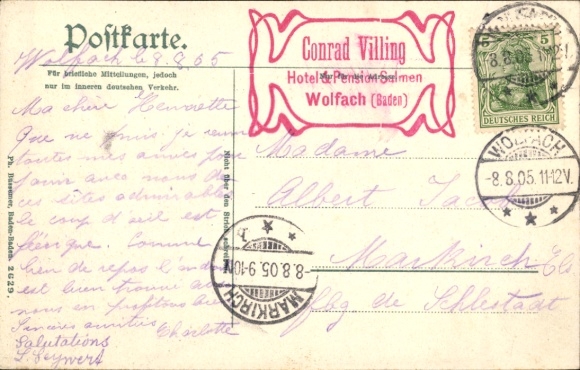 Postkarte.
Wolfach le 8.8.05
Für briefliche Mitteilungen, jedoch
nur im inneren deutschen Verkehr.
Ma chère Henriette
Que ne puis je réunir
toutes mes amies pour
jouir avec nous de
ces sites admirables
le coup d'œil est
féerique. Comme
bien de repos l'endroit
est bien trouvé
nous en profitons
Sincères amitiés
Charlotte
Salutations
L. Seywert
Ph. Büssemer, Baden-Baden. 2629.
Nicht über den Strich
Conrad Villing
Hotel & Pension Salmen
Wolfach (Baden)
5
DEUTSCHES REICH
WOLFACH
8.8.05
WOLFACH
-8.8.05.11-12V.
MARKIRCH
8.8.05.9-10N
Madame
Albert
Markirch Els
fbg de Schlestadt